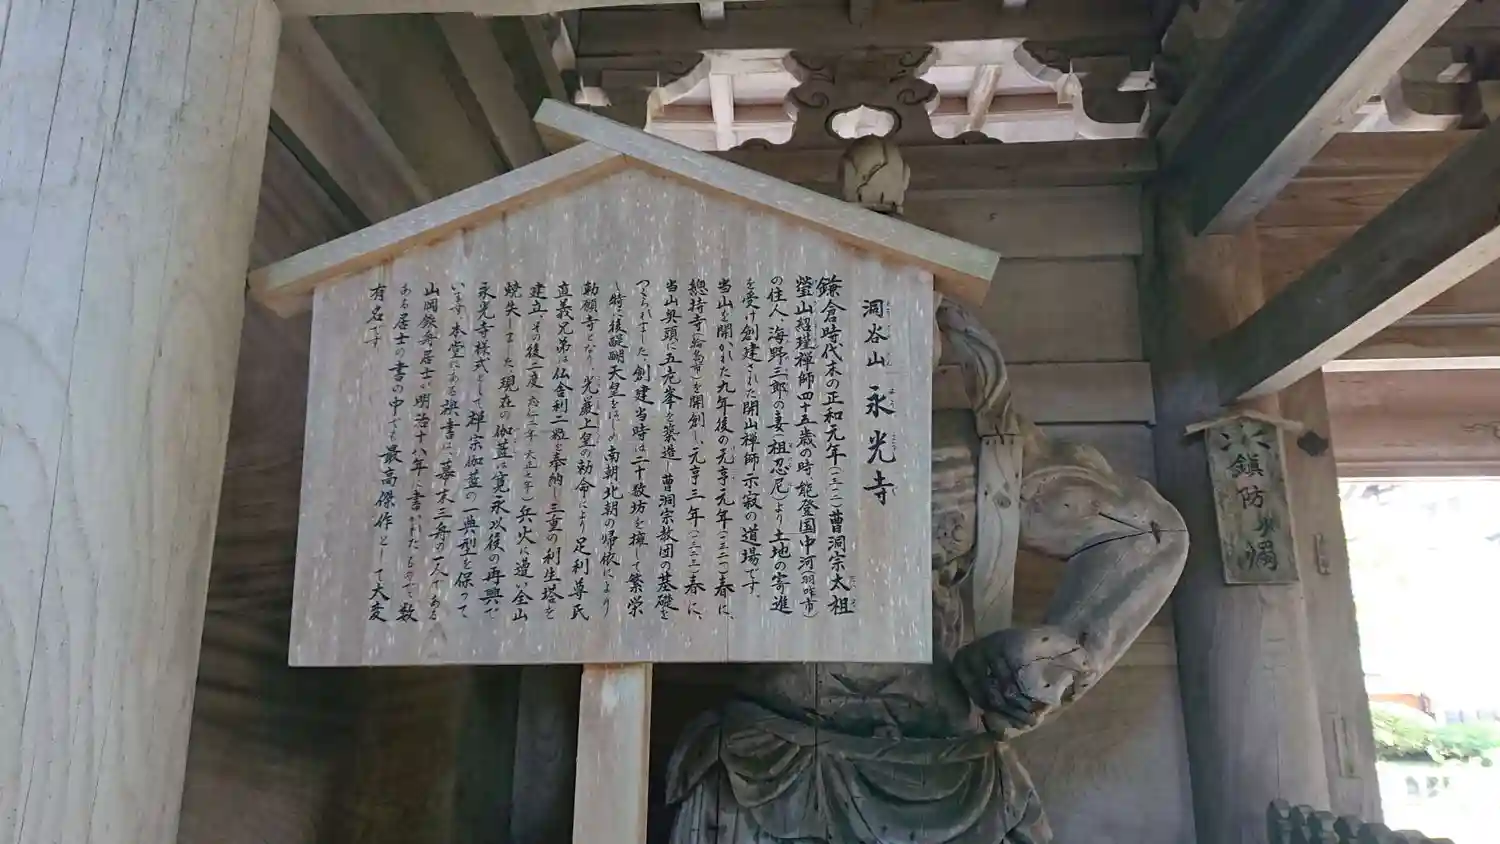 洞谷山 永光寺
鎌倉時代末の正和元年(一三一二)曹洞宗太祖
瑩山紹瑾禅師四十五歳の時、能登国中河(羽咋市)
の住人、海野三郎の妻(祖忍尼)より土地の寄進
を受け創建された開山禅師示寂の道場です。
当山を開かれた九年後の元亨元年(一三二一)春に、
總持寺(輪島市)を開創し、元亨三年(一三二三)春に、
当山奥頭に五老峯を築造し曹洞宗教団の基礎を
つくられました。創建当時は二十数坊を擁して繁栄
し特に後醍醐天皇をはじめ南朝北朝の帰依により
勅願寺となり、光厳上皇の勅命により足利尊氏
直義兄弟は仏舎利二粒を奉納し三重の利生塔を
建立、その後二度(応仁二年・天正七年)兵火に遭い全山
焼失しました 現在の伽藍は寛永以後の再興で
永光寺様式として禅宗伽藍の一典型を保って
います。本堂にある襖書は、幕末三舟の一人である
山岡鉄舟居士が明治十八年に書かれたもので、数
ある居士の書の中でも最高傑作として大変
有名です
鎮防火燭